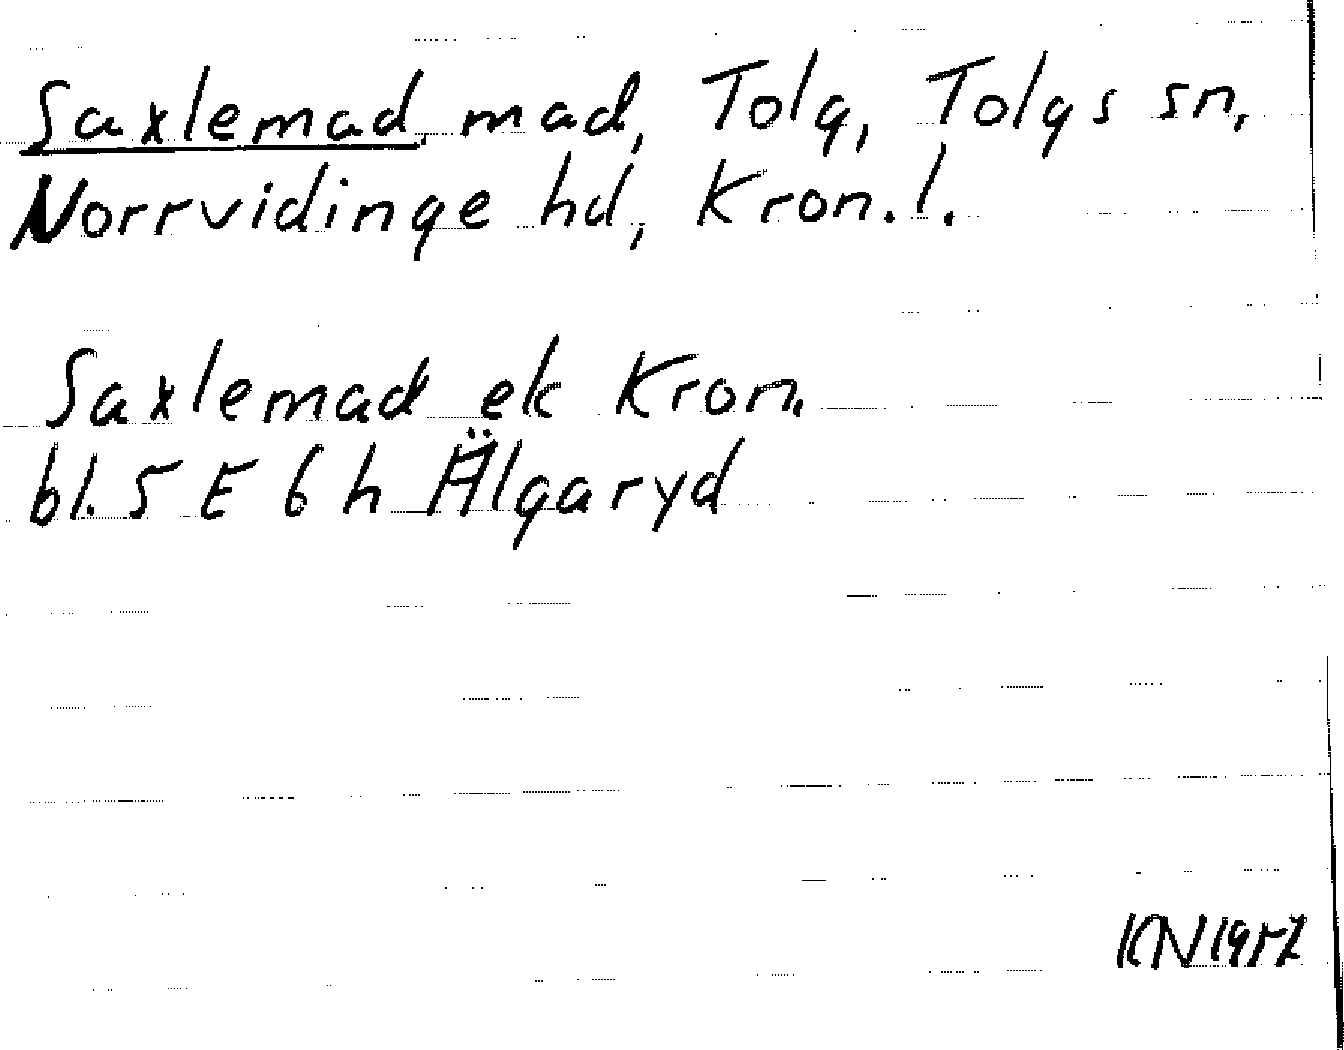 Saxlemad, mad, Tolg, Tolgs sn,
Norrvidinge hd, Kron. l.
Saxlemad ek Kron.
bl. 5 E 6 h Älgaryd
KN 1952